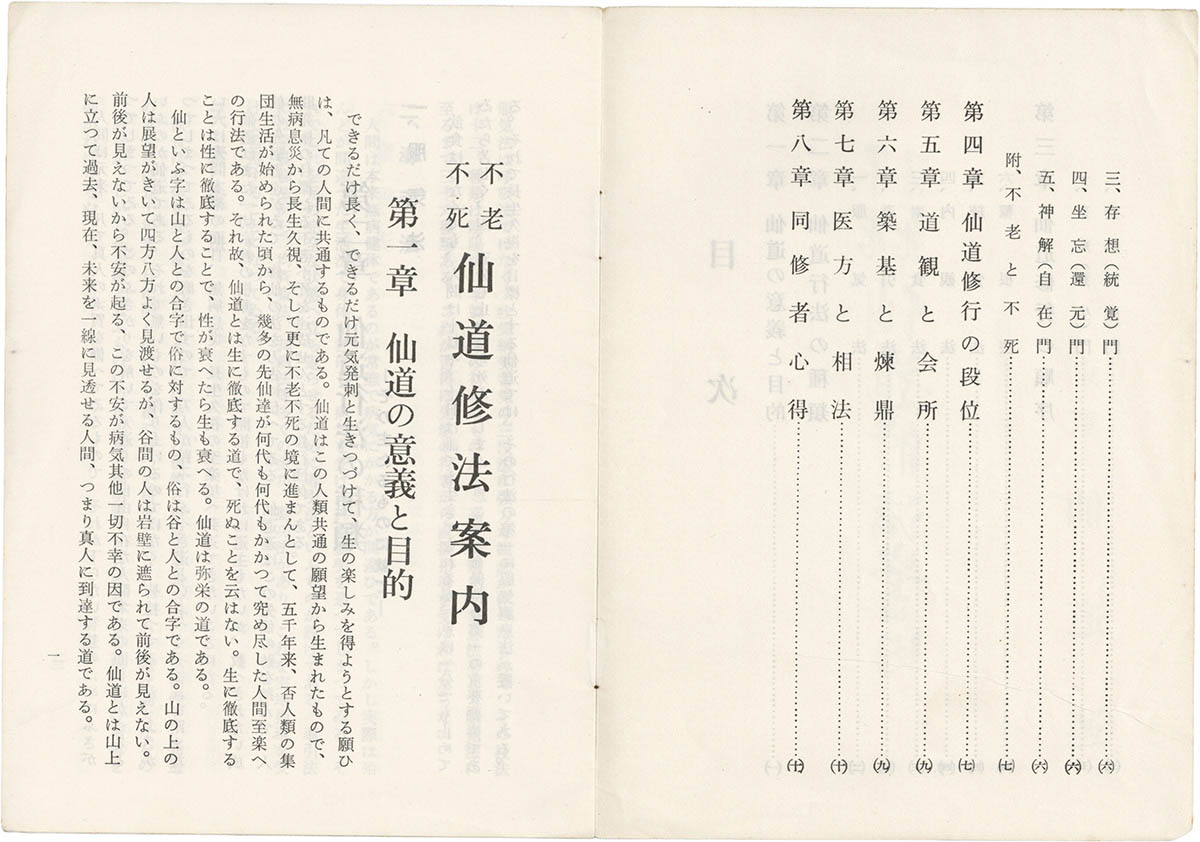 三、存想(統覚)門……………(六)
四、坐忘(還元)門……………(六)
五、神解(自在)門……………(六)
附、不老と不死……………(七)
第四章 仙道修行の段位……………(七)
第五章 道観と会所……………(九)
第六章 築基と煉鼎……………(九)
第七章 医方と相法……………(十)
第八章 同修者心得……………(十)
不老
不死
仙道修法案内
第一章 仙道の意義と目的
できるだけ長く、できるだけ元気発刺と生きつづけて、生の楽しみを得ようとする願ひ
は、凡ての人間に共通するものである。仙道はこの人類共通の願望から生まれたもので、
無病息災から長生久視、そして更に不老不死の境に進まんとして、五千年来、否人類の集
団生活が始められた頃から、幾多の先仙達が何代も何代もかかつて究め尽した人間至楽へ
の行法である。それ故、仙道とは生に徹底する道で、死ぬことを云はない。生に徹底する
ことは性に徹底することで、性が衰へたら生も衰へる。仙道は弥栄の道である。
仙といふ字は山と人との合字で俗に対するもの、俗は谷と人との合字である。山の上の
人は展望がきいて四方八方よく見渡せるが、谷間の人は岩壁に遮られて前後が見えない。
前後が見えないから不安が起る、この不安が病気其他一切不幸の因である。仙道とは山上
に立つて過去、現在、未来を一線に見透せる人間、つまり真人に到達する道である。
一